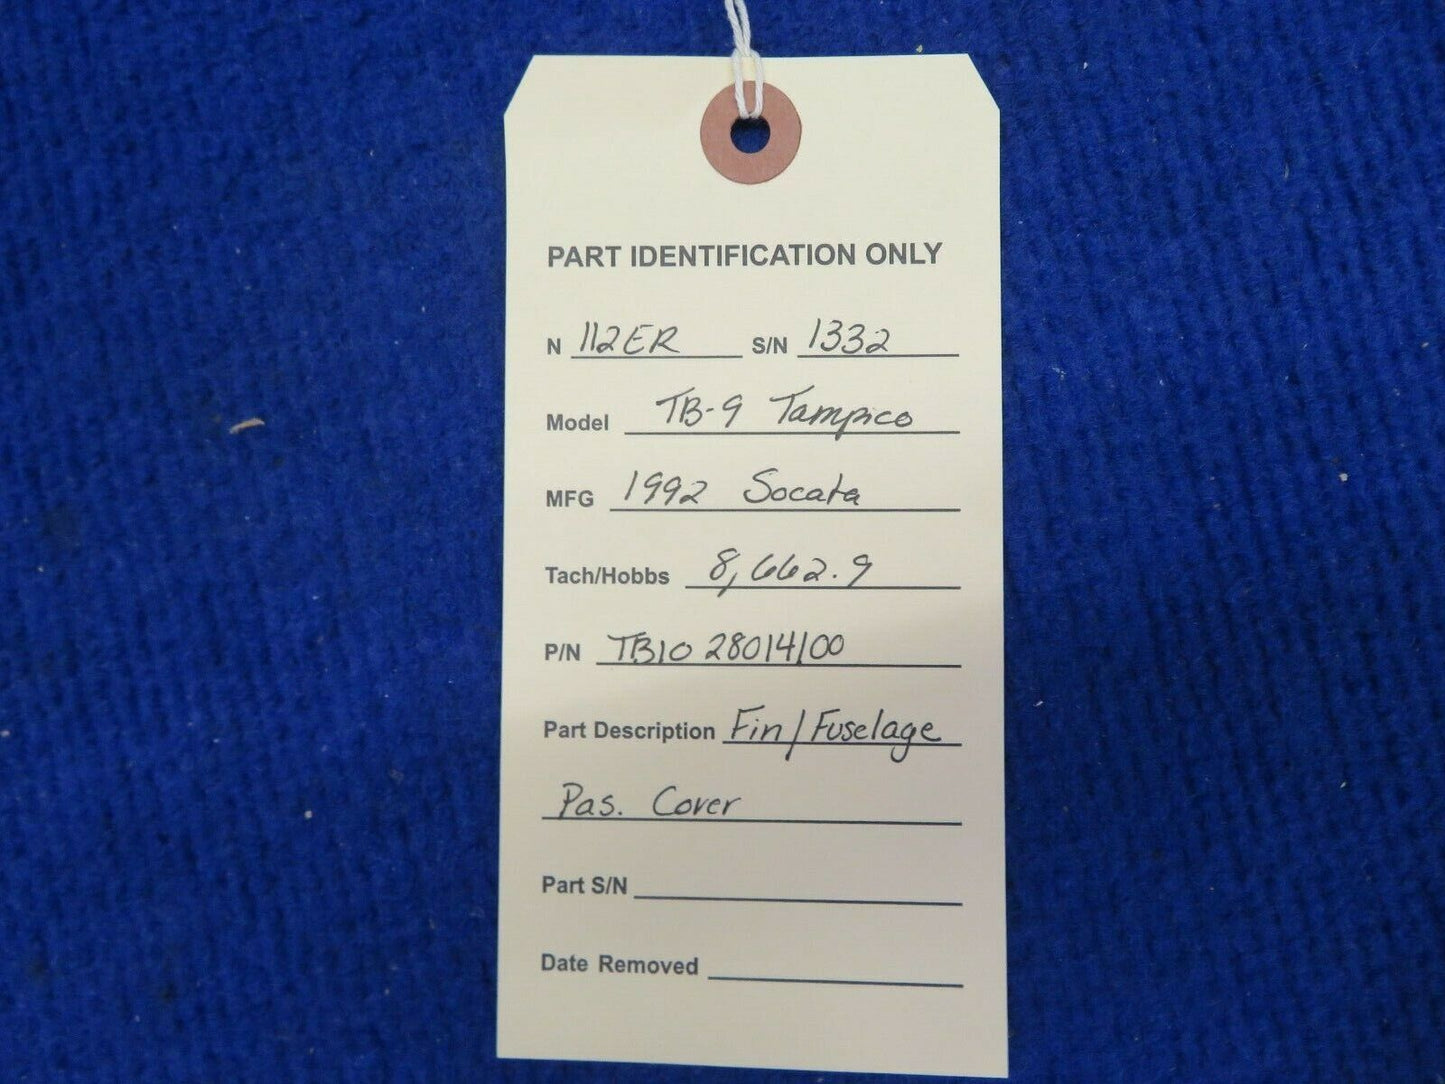 PART IDENTIFICATION ONLY
N 112ER S/N 1332
Model TB-9 Tampico
MFG 1992 Socata
Tach/Hobbs 8,662.9
P/N TB10 28014100
Part Description Fin/Fuselage
Pas. Cover
Part S/N
Date Removed